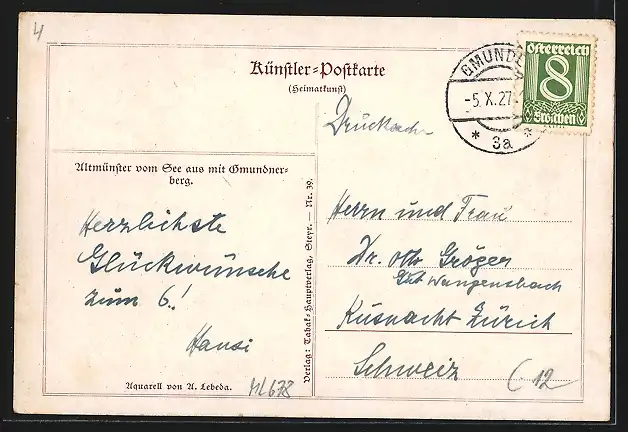 4
Künstler-Postkarte
(Heimatkunst)
Österreich
8
Groschen
GMUND
-5.X.27.
* 3a *
Drucksache
Altmünster vom See aus mit Gmundner-
berg.
Herzlichste
Glückwünsche
zum 6.!
Hansi
Aquarell von A. Lebeda.
ML678
Verlag: Tabak-Hauptverlag, Steyr. — Nr. 39.
Herrn und Frau
Dr. Otto Gröger
Gut Wangensbach
Küsnacht Zürich
Schweiz
12